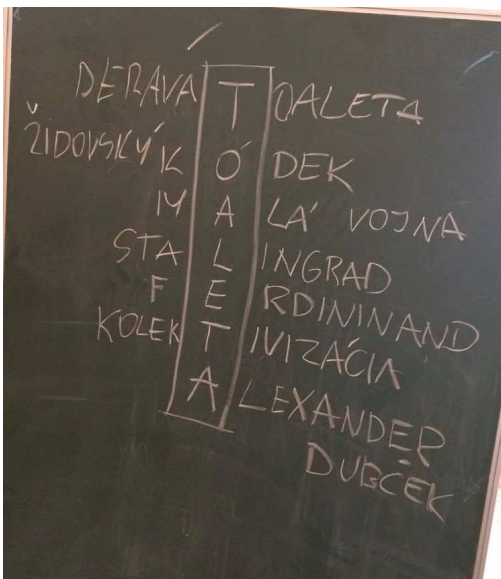 DERAVA TOALETA
ŽIDOVSKÝ KÓDEK
MALÁ VOJNA
STALINGRAD
FERDININAND
KOLEKTIVIZÁCIA
ALEXANDER
DUBČEK